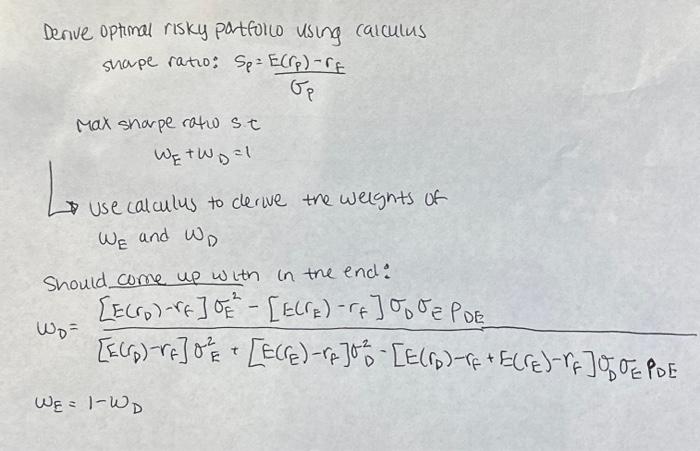 Derive optimal risky portfolio using calculus
sharpe ratio: Sp = E(rp) - rf / σp
Max sharpe ratio s.t
wE + wD = 1
↳ use calculus to derive the weights of
wE and wD
Should come up with in the end:
wD = [E(rD) - rf] σE² - [E(rE) - rf] σD σE ρDE / [E(rD) - rf] σE² + [E(rE) - rf] σD² - [E(rD) - rf + E(rE) - rf] σD σE ρDE
wE = 1 - wD